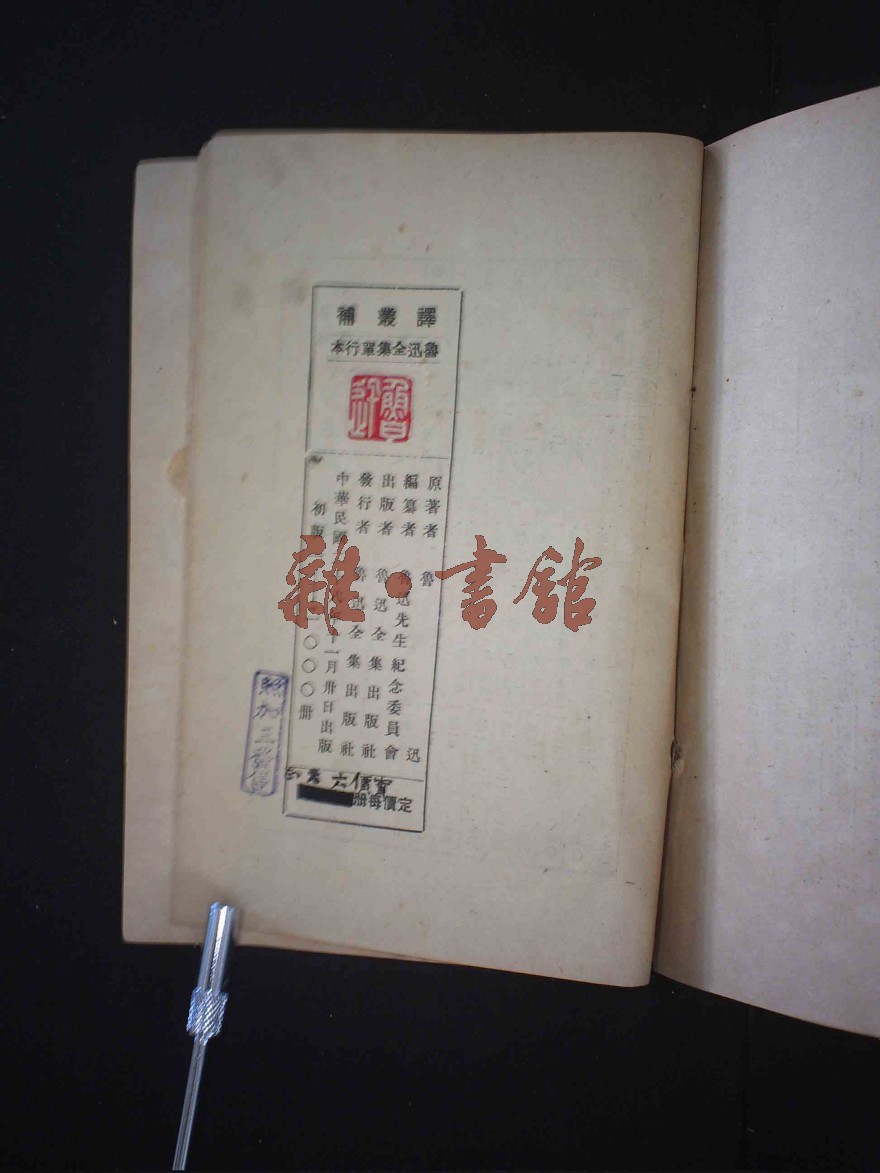 譯叢補
魯迅全集單行本
魯迅
原著者 魯迅
編纂者 魯迅先生紀念委員會
出版者 魯迅全集出版社
發行者 魯迅全集出版社
中華民國 十一月卅日出版
初版 一〇〇〇册
實價六
定價每册
照加三
雜·書館